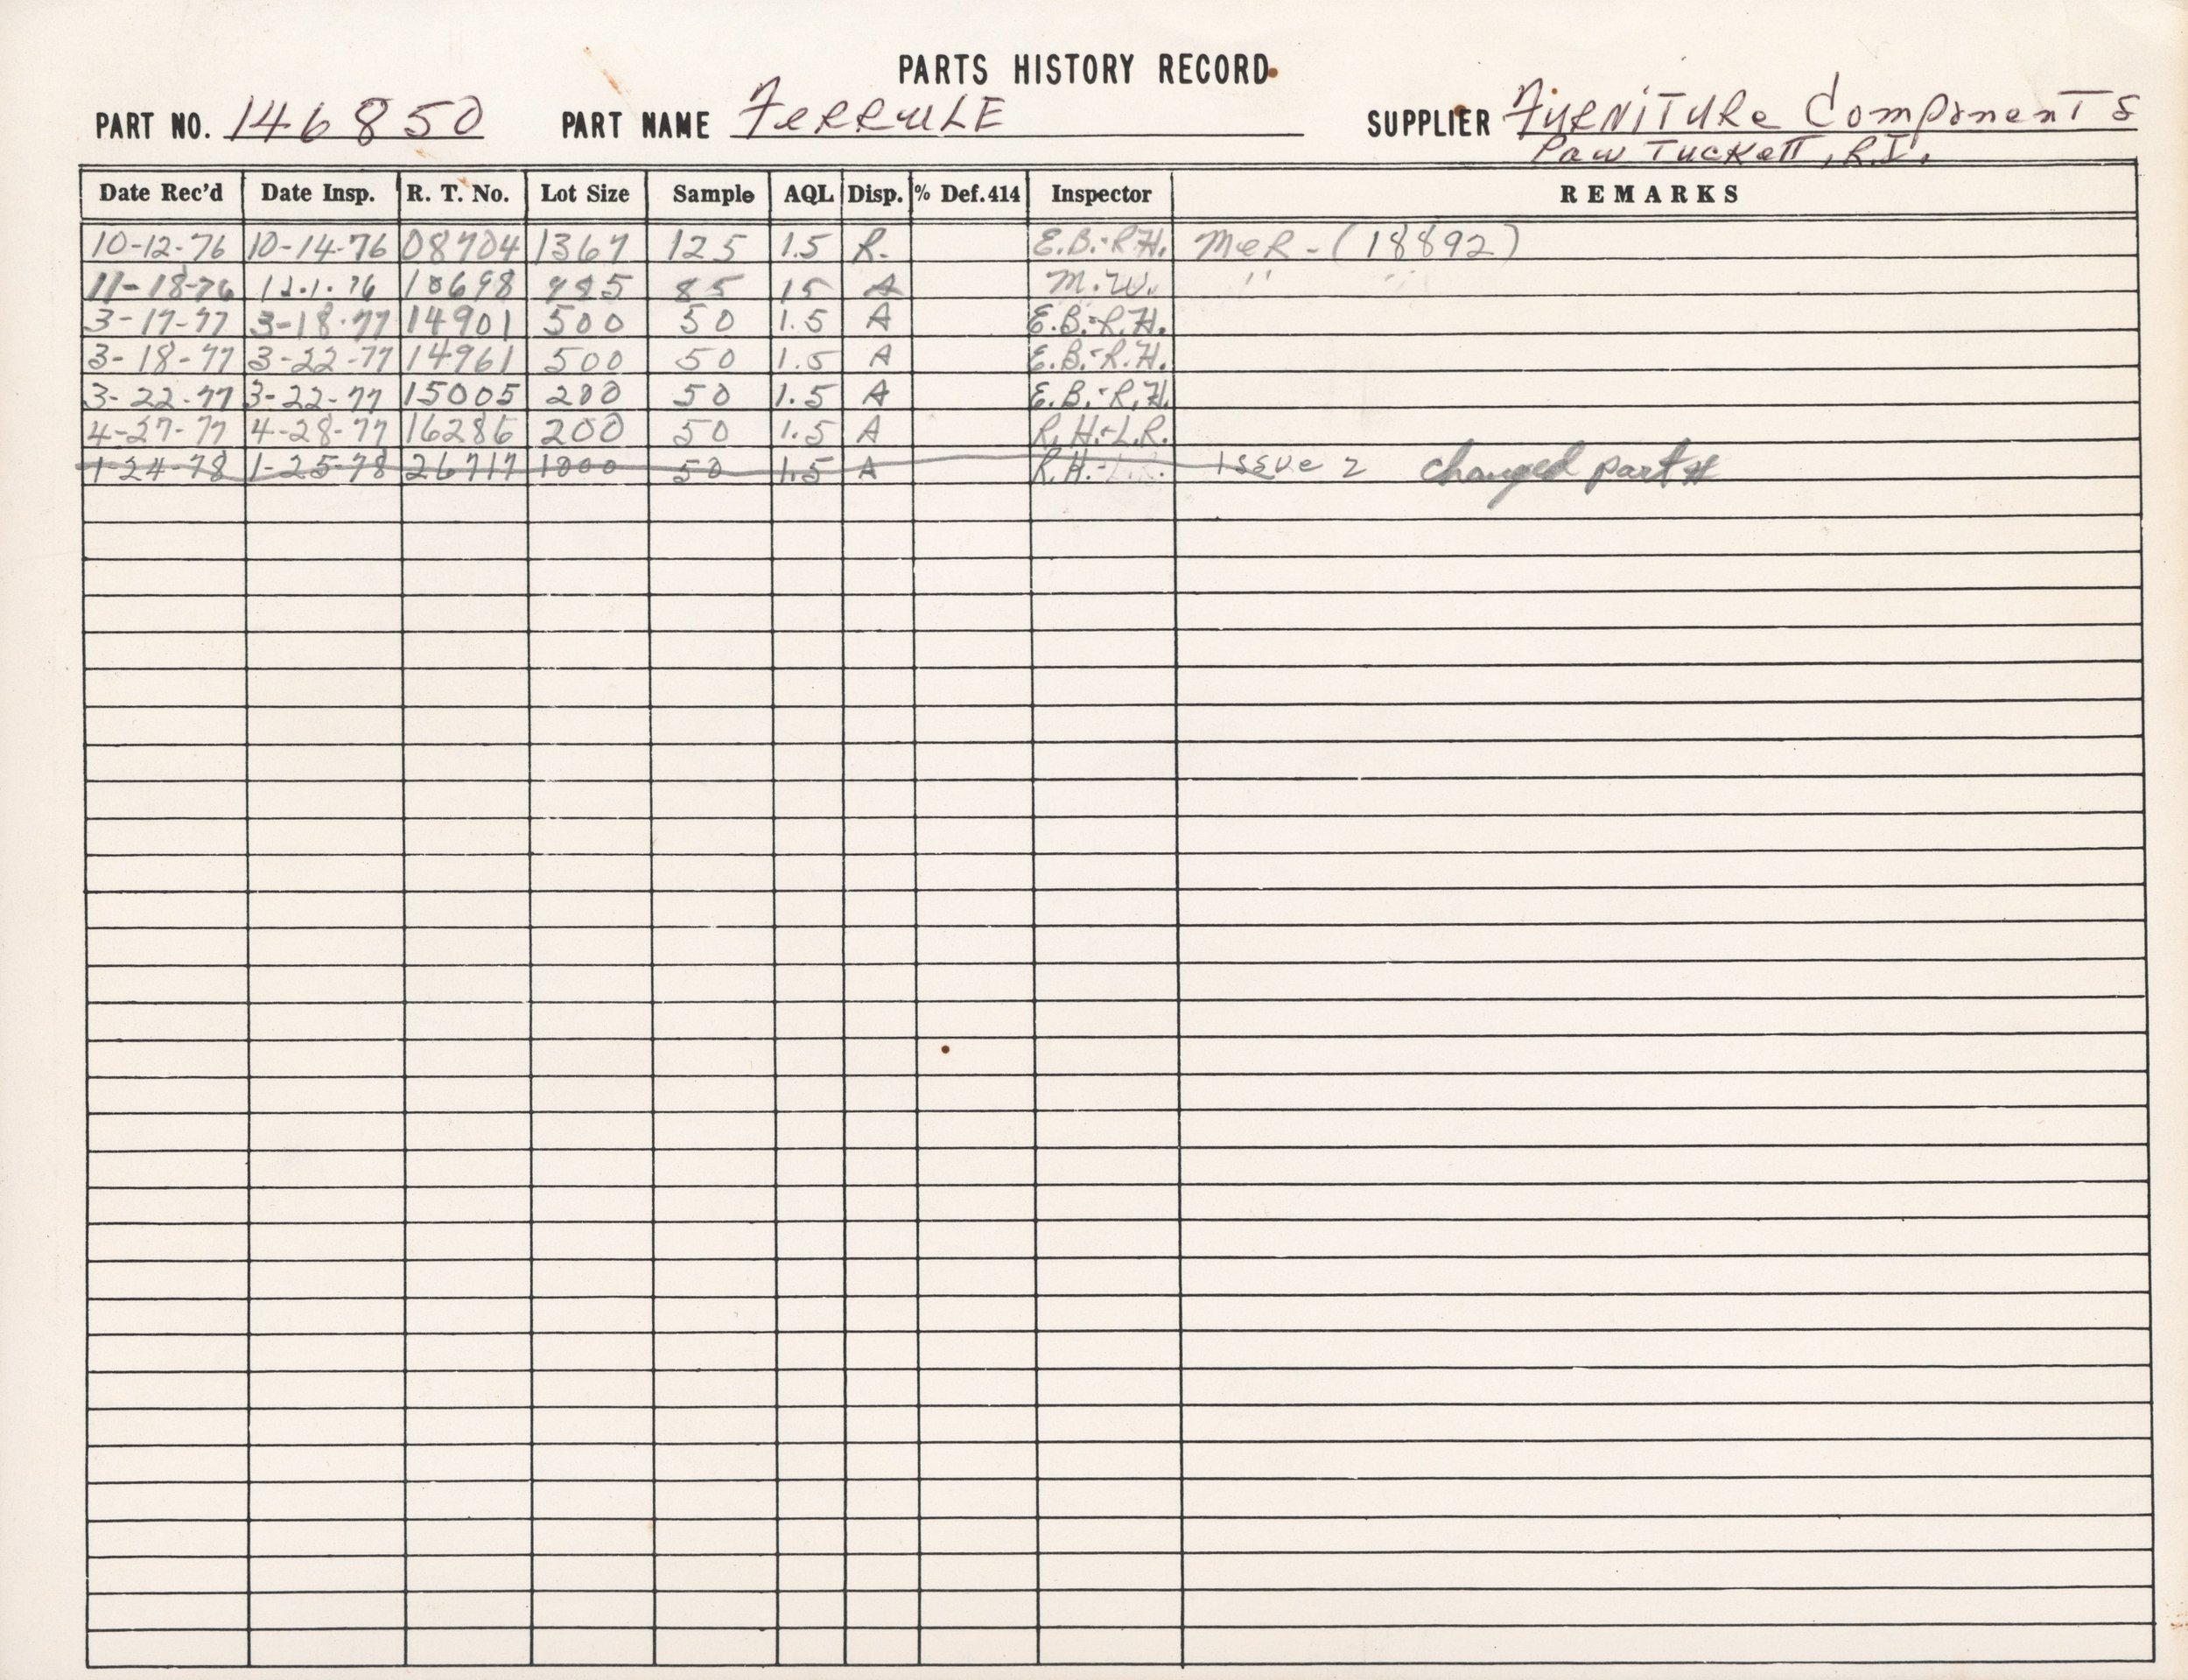 PARTS HISTORY RECORD
PART NO. 146850 PART NAME FeRRuLE SUPPLIER FuRNiTURe ComponenTS
PawTucKeTT, R.I.
Date Rec'd Date Insp. R. T. No. Lot Size Sample AQL Disp. % Def.414 Inspector REMARKS
10-12-76 10-14-76 08704 1367 125 1.5 R. E.B.-R.H. MeR-(18892)
11-18-76 10698 85 15 A M.W. " "
3-17-77 3-18-77 14901 500 50 1.5 A E.B.-R.H.
3-18-77 3-22-77 14961 500 50 1.5 A E.B.-R.H.
3-22-77 3-22-77 15005 200 50 1.5 A E.B.-R.H.
4-27-77 4-28-77 16286 200 50 1.5 A R.H.-L.R.
1-24-78 1-25-78 26717 1000 50 1.5 A R.H.-L.R. Issue 2 changed part #